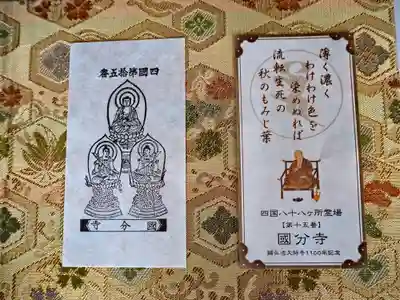 四國第拾五番
國分寺
薄く濃く
わけわけ色を
染めぬれば
流転生死の
秋のもみじ葉
四国八十八ヶ所霊場
【第十五番】
國分寺
弘法大師号1100年記念